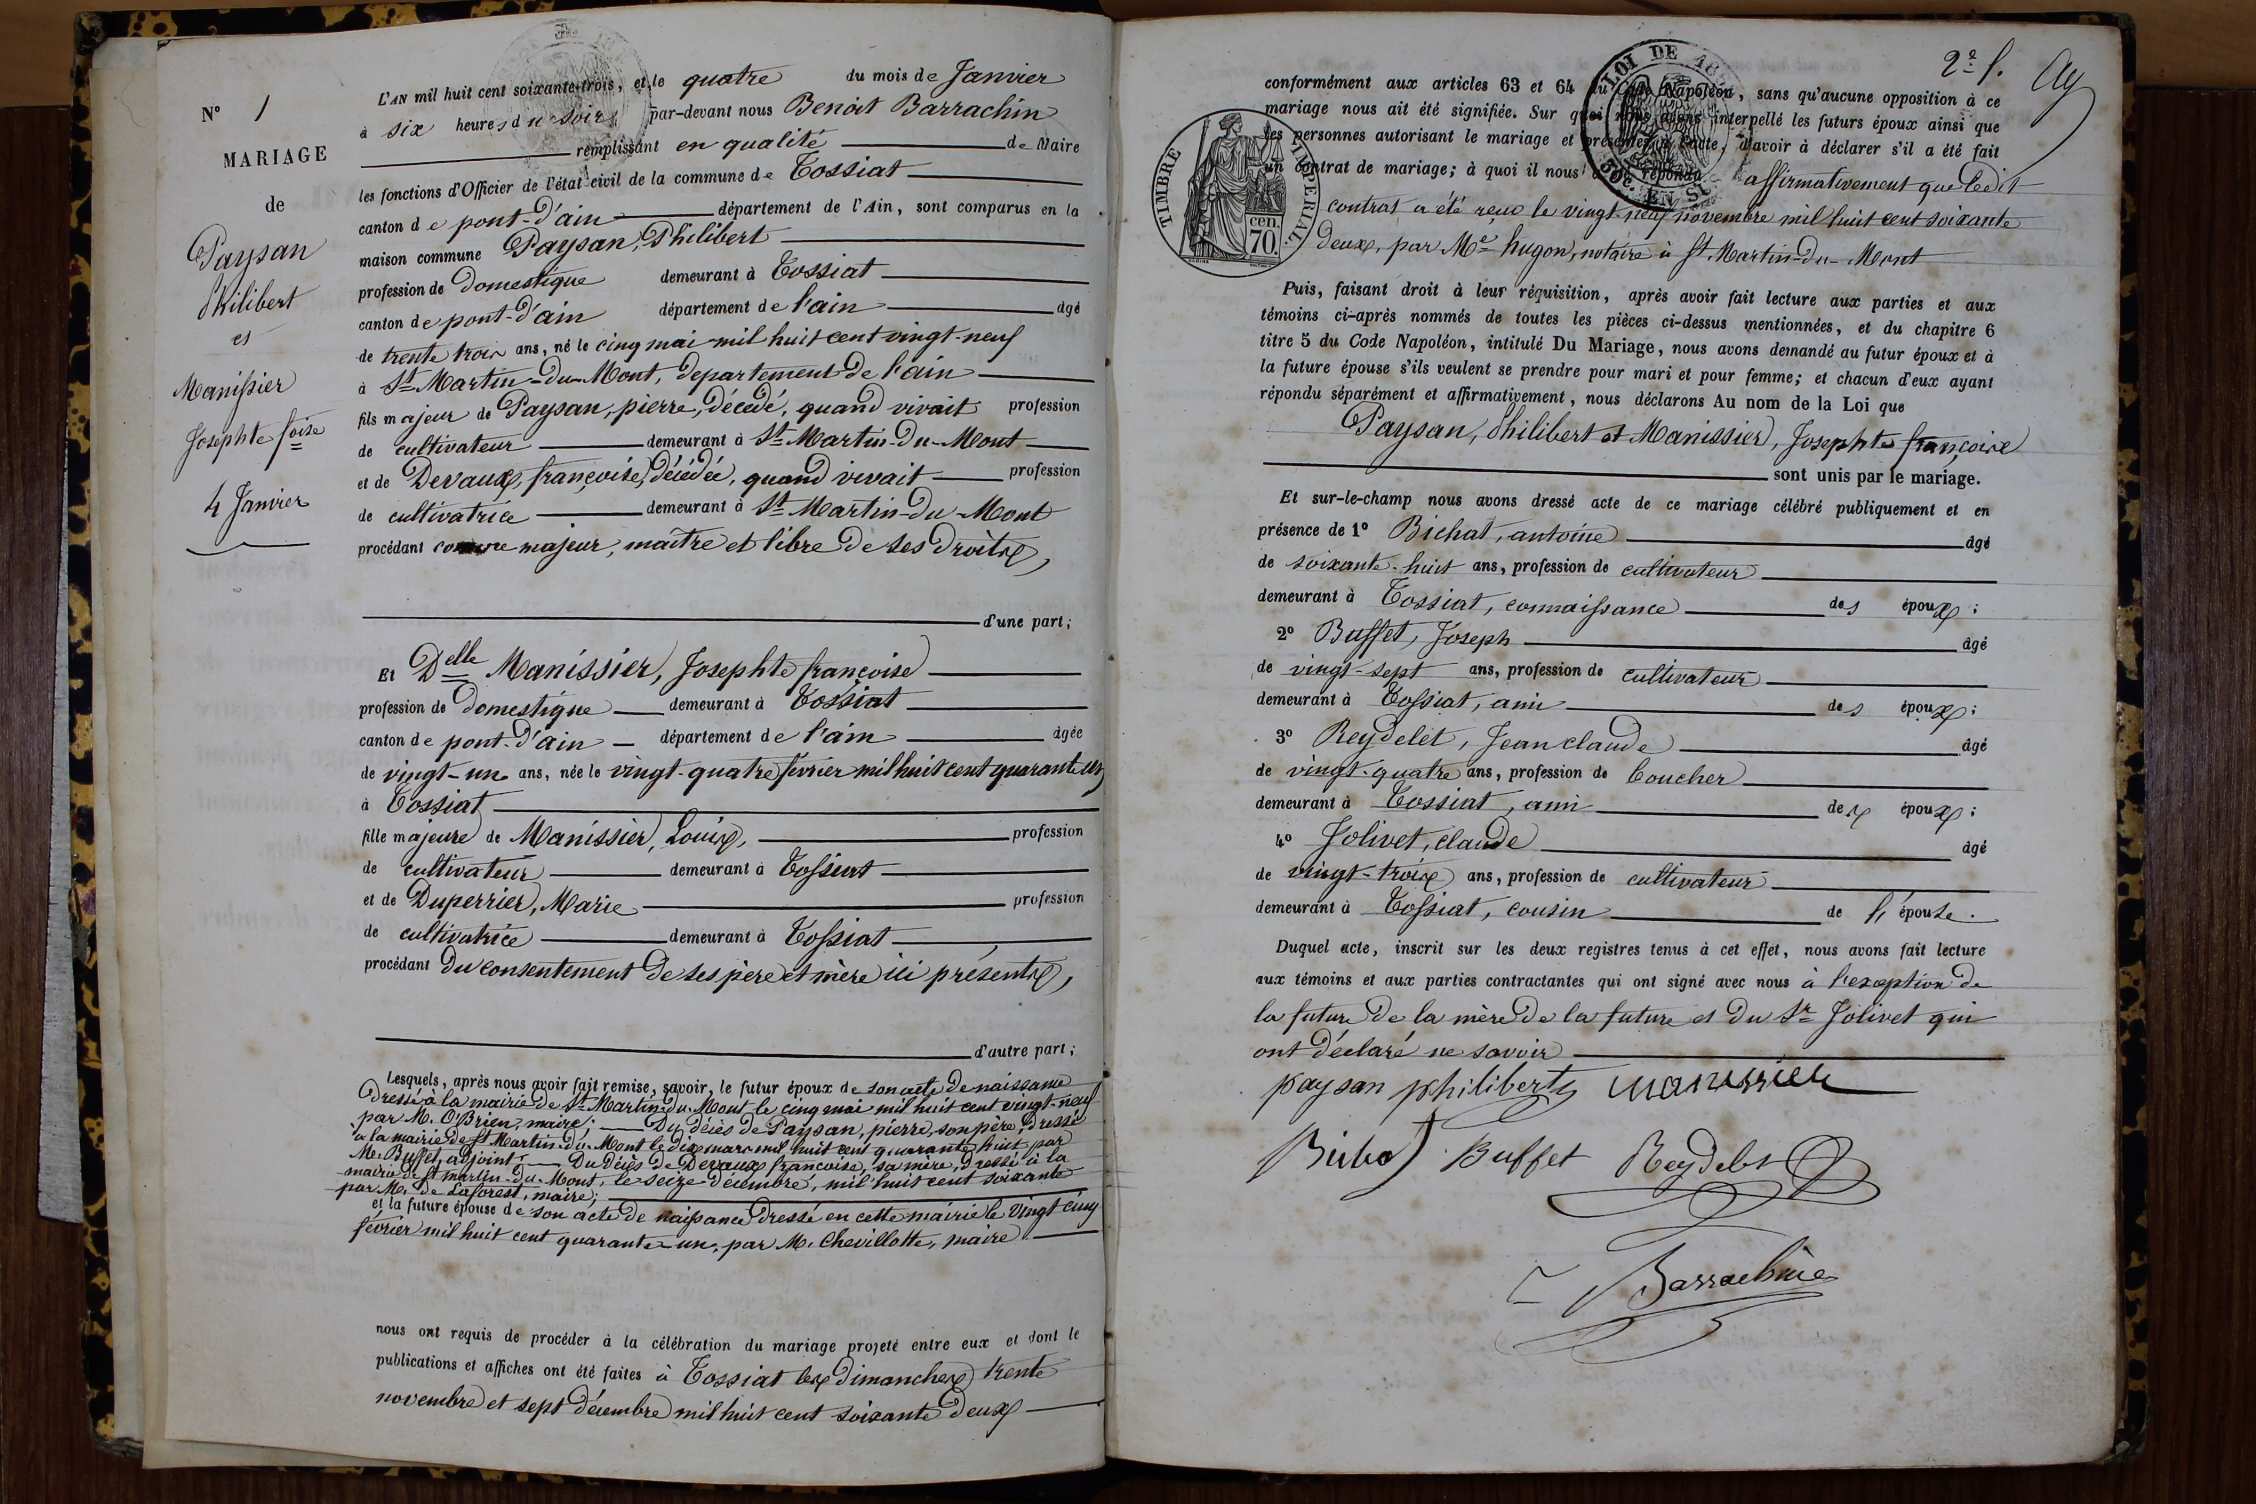 N° 1
MARIAGE
de
Paysan
Philibert
et
Manissier
Josephte foise
4 Janvier
L'AN mil huit cent soixante-trois, et le quatre du mois de Janvier
à six heures du soir par-devant nous Benoit Barrachin
remplissant en qualité de Maire
les fonctions d'Officier de l'état civil de la commune de Tossiat
canton de pont-d'ain département de l'Ain, sont comparus en la
maison commune Paysan, Philibert
profession de domestique demeurant à Tossiat
canton de pont-d'ain département de l'ain âgé
de trente trois ans, né le cinq mai mil huit cent vingt-neuf
à St Martin-du-Mont, departement de l'ain
fils majeur de Paysan, pierre, décédé, quand vivait profession
de cultivateur demeurant à St Martin-du-Mont
et de Devaux, françoise, décédée, quand vivait profession
de cultivatrice demeurant à St Martin-du-Mont
procédant comme majeur, maître et libre de ses droits,
d'une part;
Et Delle Manissier, Josephte françoise
profession de domestique demeurant à Tossiat
canton de pont-d'ain département de l'ain âgée
de vingt-un ans, née le vingt-quatre février mil huit cent quarante un
à Tossiat
fille majeure de Manissier, Louis, profession
de cultivateur demeurant à Tossiat
et de Duperrier, Marie profession
de cultivatrice demeurant à Tossiat
procédant du consentement de ses père et mère ici présents,
d'autre part;
Lesquels, après nous avoir fait remise, savoir, le futur époux de son acte de naissance
dressé à la mairie de St Martin-du-Mont le cinq mai mil huit cent vingt-neuf
par M. OBrien, maire; Du décès de Paysan, pierre, son père, dressé
a la mairie de St Martin-du-Mont le dix mars mil huit cent quarante huit par
Me. Buffet, adjoint; Du décès de Devaux francoise, sa mère, dressé à la
mairie de St martin-du-Mont, le seize décembre, mil huit cent soixante
par M. de Laforest, maire;
et la future épouse de son acte de naissance dressé en cette mairie le vingt cinq
février mil huit cent quarante-un, par M. Chevillotte, maire
nous ont requis de procéder à la célébration du mariage projeté entre eux et dont le
publications et affiches ont été faites à Tossiat les dimanches trente
novembre et sept décembre mil huit cent soixante deux
2e f.
TIMBRE IMPERIAL
70 cen.
LOI DE
50c. EN S
conformément aux articles 63 et 64 du Code Napoléon, sans qu'aucune opposition à ce
mariage nous ait été signifiée. Sur quoi nous avons interpellé les futurs époux ainsi que
les personnes autorisant le mariage et présentes à l'acte, d'avoir à déclarer s'il a été fait
un contrat de mariage; à quoi il nous a été répondu affirmativement que ledit
contrat a été reçu le vingt-neuf novembre mil huit cent soixante
deux, par Me hugon, notaire à St. Martin-du-Mont
Puis, faisant droit à leur réquisition, après avoir fait lecture aux parties et aux
témoins ci-après nommés de toutes les pièces ci-dessus mentionnées, et du chapitre 6
titre 5 du Code Napoléon, intitulé Du Mariage, nous avons demandé au futur époux et à
la future épouse s'ils veulent se prendre pour mari et pour femme; et chacun d'eux ayant
répondu séparément et affirmativement, nous déclarons Au nom de la Loi que
Paysan, Philibert et Manissier, Josephte françoise
sont unis par le mariage.
Et sur-le-champ nous avons dressé acte de ce mariage célébré publiquement et en
présence de 1° Bichat, antoine âgé
de soixante-huit ans, profession de cultivateur
demeurant à Tossiat, connaissance des époux;
2° Buffet, Joseph âgé
de vingt-sept ans, profession de cultivateur
demeurant à Tossiat, ami des époux;
3° Reydelet, Jean claude âgé
de vingt-quatre ans, profession de boucher
demeurant à Tossiat, ami des époux;
4° Jolivet, claude âgé
de vingt-trois ans, profession de cultivateur
demeurant à Tossiat, cousin de l'épouse.
Duquel acte, inscrit sur les deux registres tenus à cet effet, nous avons fait lecture
aux témoins et aux parties contractantes qui ont signé avec nous à l'exception de
la future de la mère de la future et du Sr Jolivet qui
ont déclaré ne savoir
paysan philibert manissier
Buffet Reydelet
Barrachin